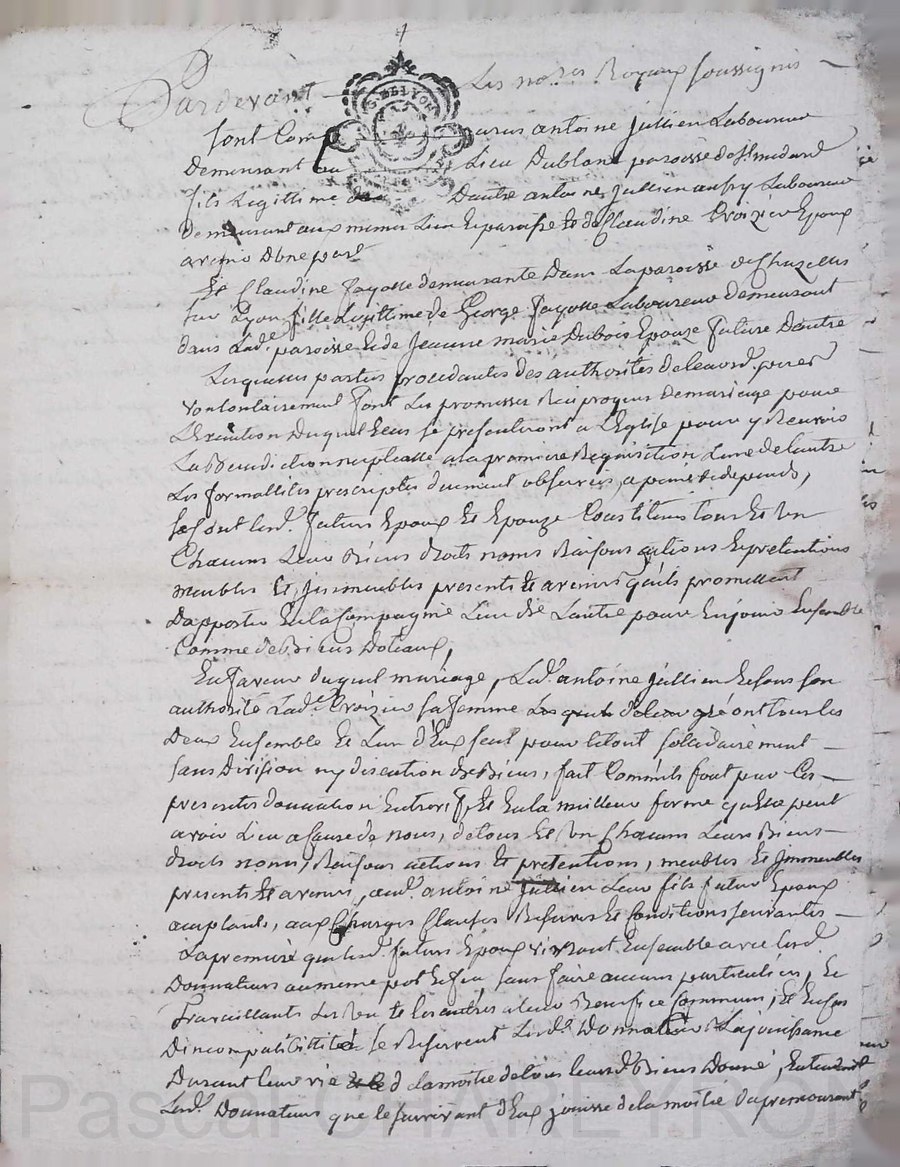 Pardevant Les no.res Royaux soussignés
sont Comparus antoine jullien Laboureur
demeurant au Lieu Dublanc paroisse de st medard
fils Legittime dautre antoine jullien aussy Laboureur
demeurant aux mimes Lieu Et paroisse Et de Claudine Croizier Epoux
avenir dune part
Et Claudine fayolle demeurante Dans La paroisse de Chazelles
sur Lyon fille Legittime de George fayolle Laboureur demeurant
dans Lad.e paroisse Et de Jeanne marie Dubois Epouze future Dautre
Lesquelles parties procedantes des authorités de leursd. peres
volontairement font Les promesses Reciproques de mariage pour
LExecution Duquel Eux se presenteront a LEglise pour y Recevoir
La Benediction nuptialle a la premiere Requisition Lune de Lautre
Les formallites prescriptes duement observées, a peine de depends,
se sont Lesd. futurs Epoux Et Epouze Constitués tous Et un
Chacuns Leurs Biens droits noms Raisons actions Et pretentions
meubles Et Immeubles presents Et avenirs quils promettent
Dapporter En la Compagnie Lun de Lautre pour En jouir Ensemble
Comme de Biens Dotaux,
En faveur duquel mariage, Led. antoine jullien Et sous son
authorité Lad.e Croizier sa femme Lesquels de leur gré ont tous les
Deux Ensemble Et Lun dEux seul pour Letout solidairement
sans Division ny discution de Biens, fait Comme ils font par Ces
presentes donnation Entrevifs, Et En la meilleur forme quElle peut
avoir Lieu a Cause de nous, de tous Et un Chacuns Leurs Biens
droits noms, Raisons actions Et pretentions, meubles Et Immeubles
presents Et avenirs, aud. antoine jullien Leur fils futur Epoux
acceptant, aux Charges Clauses Reserves Et Conditions suivantes
La premiere que lesd. futurs Epoux vivront Ensemble avec Lesd.
Donnateurs au meme pot Et feu, sans faire aucuns particuliers, Et
Travaillants Les uns Et les autres a leur Benefice Commun, Et En cas
Dincompatibilité se Reservent Lesd. Donnateurs La jouissance
Durant leur vie de La moitié de tous leursd. Biens Donné, Entendent
Lesd. Donnateurs que le survivant dEux jouisse de la moitié du premourant
Pascal CHAREYRON